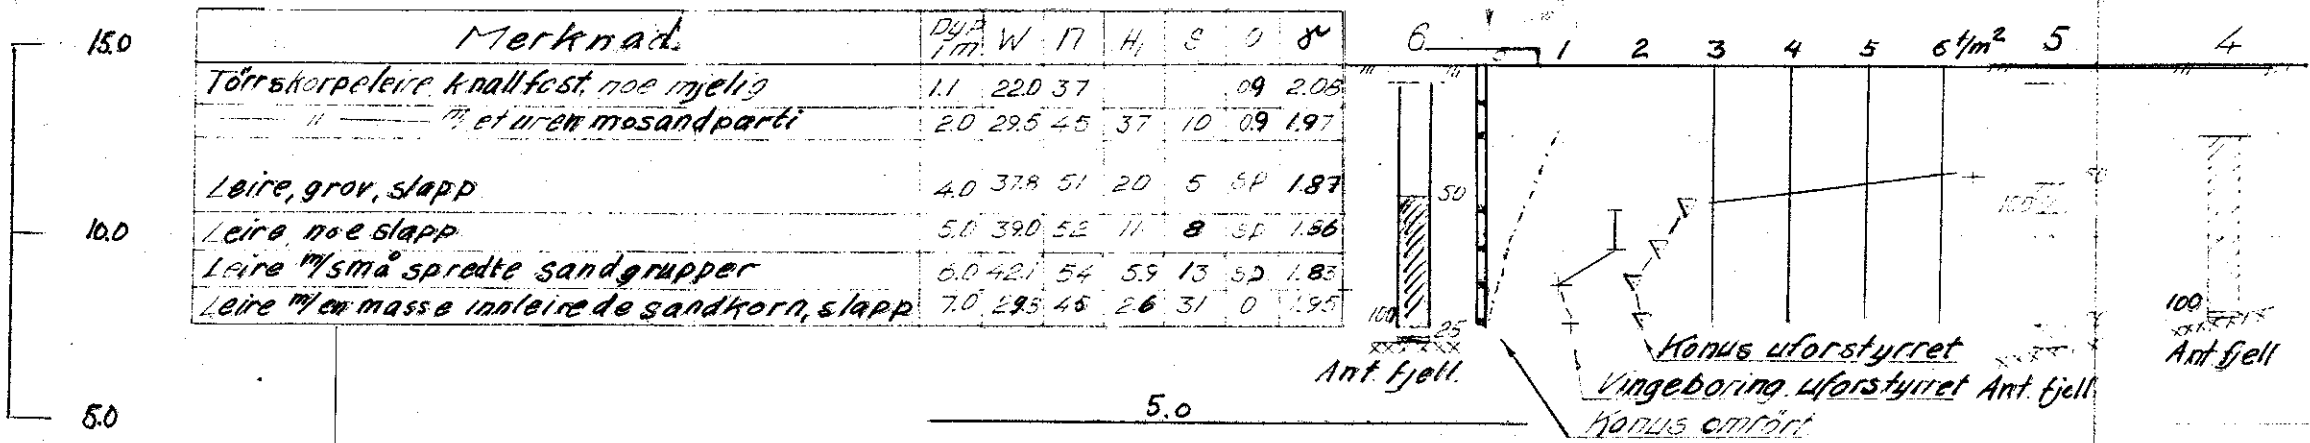 15.0
10.0
5.0
Merknad. Dyp i m W n H₁ S O γ
Törrskorpeleire knallfast, noe mjelig 1.1 22.0 37 09 2.08
— " — m/ et uren mosandparti 2.0 29.5 45 37 10 09 1.97
Leire, grov, slapp 4.0 37.8 51 20 5 sp 1.87
Leire noe slapp 5.0 39.0 52 11 8 sp 1.86
Leire m/små spredte sandgrupper 6.0 42.1 54 5.9 13 sp 1.83
Leire m/en masse innleirede sandkorn, slapp 7.0 29.5 45 2.6 31 0 1.95
6
1 2 3 4 5 6 t/m²
5
4
50
100
25
Ant. fjell.
100
50
100
Konus uforstyrret
Vingeboring uforstyrret
Konus omrört
Ant. fjell
Ant fjell
5.0